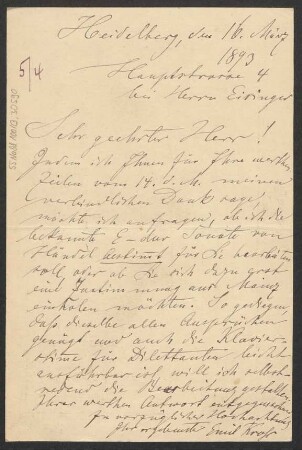 Heidelberg, den 16. März
1893
5/4
Hauptstrasse 4
bei Herrn Eisinger
Sehr geehrter Herr!
Indem ich Ihnen für Ihre werthen
Zeilen vom 14. d. M. meinen
verbindlichen Dank sage,
möchte ich anfragen, ob ich die
bekannte E-dur Sonate von
Händel bestimmt für Sie bearbeiten
soll, oder ob Sie sich dazu erst
die Zustimmung aus Mainz
einholen möchten. So gediegen,
daß dieselbe allen Ansprüchen
genügt und auch die Klavier-
stimme für Dilettanten leicht
ausführbar ist, will ich selbst-
redend die Bearbeitung gestalten.
Ihrer werthen Antwort entgegensehend
in vorzüglicher Hochachtung
Ihr ergebenster Emil